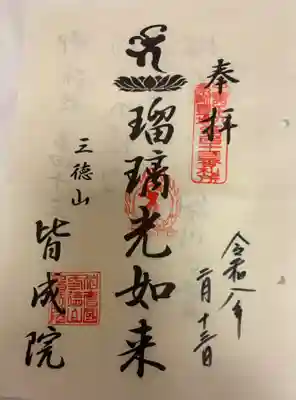 奉拝
瑠璃光如来
三徳山
皆成院
令和八年
二月十三日